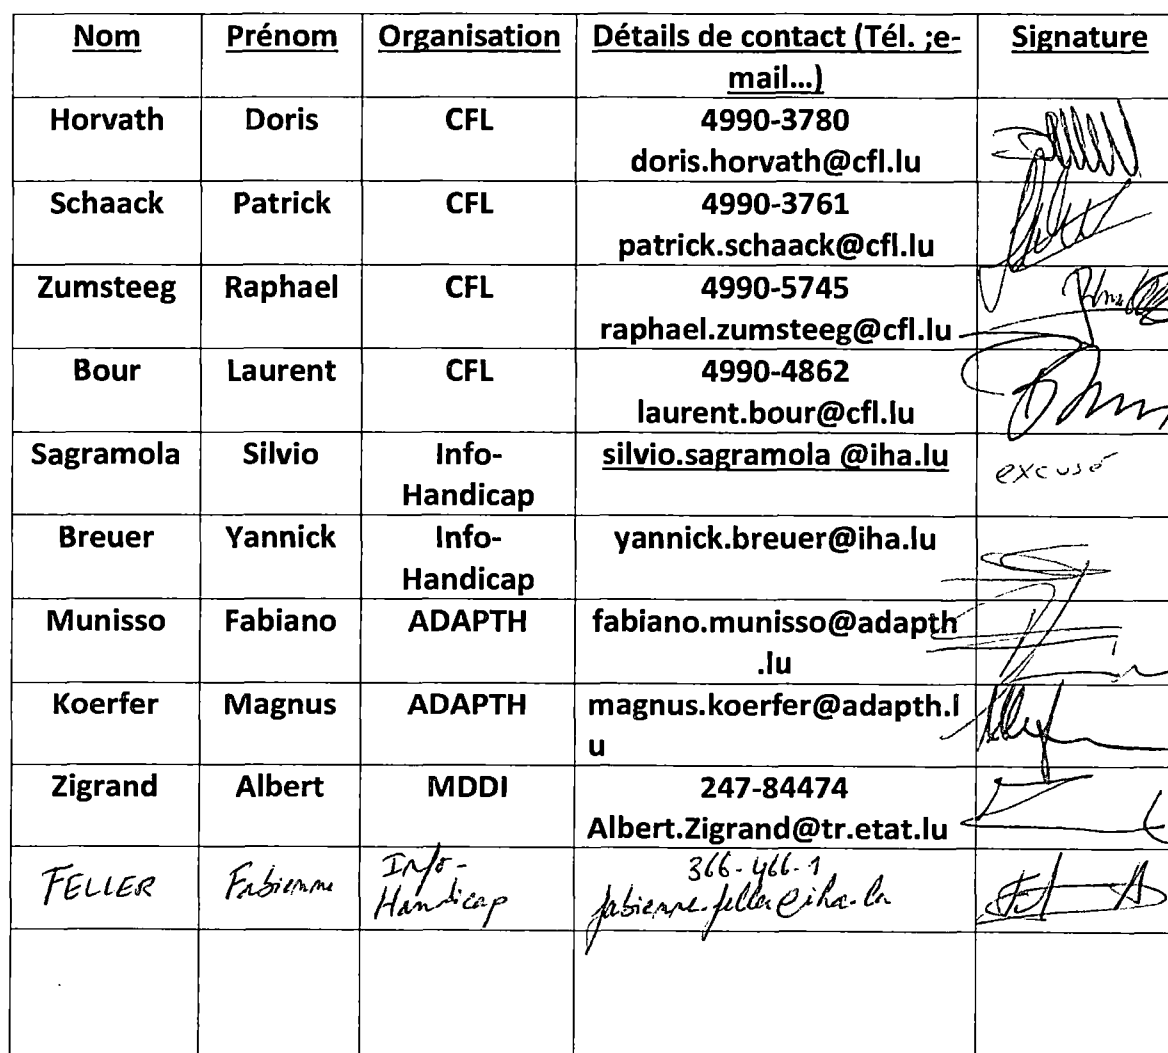 Nom Prénom Organisation Détails de contact (Tél. ;e-
mail...) Signature
Horvath Doris CFL 4990-3780
doris.horvath@cfl.lu
Schaack Patrick CFL 4990-3761
patrick.schaack@cfl.lu
Zumsteeg Raphael CFL 4990-5745
raphael.zumsteeg@cfl.lu
Bour Laurent CFL 4990-4862
laurent.bour@cfl.lu
Sagramola Silvio Info-
Handicap silvio.sagramola @iha.lu excusé
Breuer Yannick Info-
Handicap yannick.breuer@iha.lu
Munisso Fabiano ADAPTH fabiano.munisso@adapth
.lu
Koerfer Magnus ADAPTH magnus.koerfer@adapth.l
u
Zigrand Albert MDDI 247-84474
Albert.Zigrand@tr.etat.lu
FELLER Fabienne Info-
Handicap 366-466-1
fabienne.feller@iha.lu